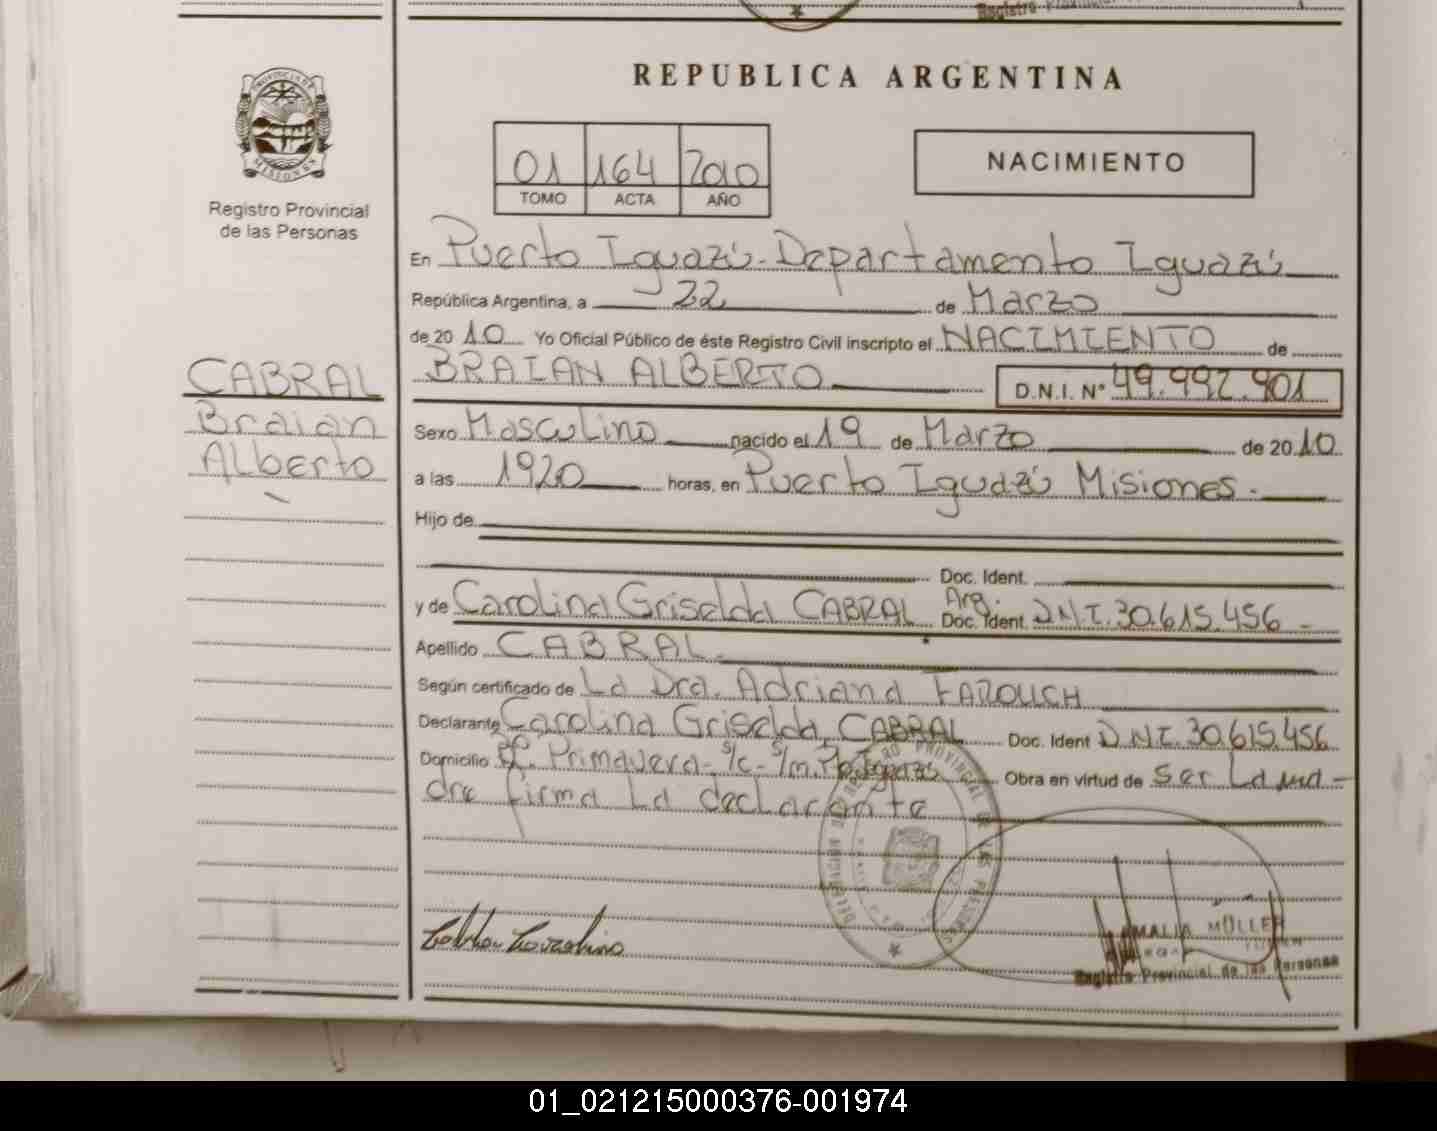 REPUBLICA ARGENTINA
PROVINCIA DE
MISIONES
Registro Provincial
de las Personas
01 164 2010
TOMO ACTA AÑO
NACIMIENTO
En Puerto Iguazú - Departamento Iguazú
República Argentina, a 22 de Marzo
de 2010 Yo Oficial Público de éste Registro Civil inscripto el NACIMIENTO de
BRAIAN ALBERTO D.N.I. Nº 49.992.901
CABRAL
Braian
Alberto
Sexo Masculino nacido el 19 de Marzo de 2010
a las 1920 horas, en Puerto Iguazú Misiones.
Hijo de
Doc. Ident.
y de Carolina Griselda CABRAL Arg. Doc. Ident. D.N.I. 30.615.456
Apellido CABRAL
Según certificado de La Dra. Adriana FAROUCH
Declarante Carolina Griselda, CABRAL Doc. Ident D.N.I. 30.615.456
Domicilio Bº. Primavera - s/c - s/m. Pto. Iguazú Obra en virtud de ser La ma-
dre firma La declarante
MALIA MÜLLER
Registro Provincial de las Personas
01_021215000376-001974